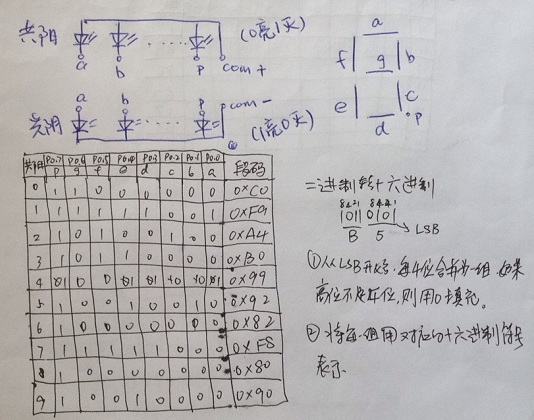 共阳 a b p com+ (0亮1灭)
共阴 a b p com- (1亮0灭)
a
f g b
e c
d p
共阳 P0.7 P0.6 P0.5 P0.4 P0.3 P0.2 P0.1 P0.0 段码
p g f e d c b a
0 1 1 0 0 0 0 0 0 0xC0
1 1 1 1 1 1 0 0 1 0xF9
2 1 0 1 0 0 1 0 0 0xA4
3 1 0 1 1 0 0 0 0 0xB0
4 0x 99
5 1 0 0 1 0 0 1 0 0x92
6 1 0 0 0 0 0 1 0 0x82
7 1 1 1 1 1 0 0 0 0xF8
8 1 0 0 0 0 0 0 0 0x80
9 1 0 0 1 0 0 0 0 0x90
二进制转十六进制
8421 8421
1011 0101
B 5 LSB
①从LSB开始,每4位合并为一组,如果
高位不足4位,则用0填充。
②将每一组用对应的十六进制符号
表示.